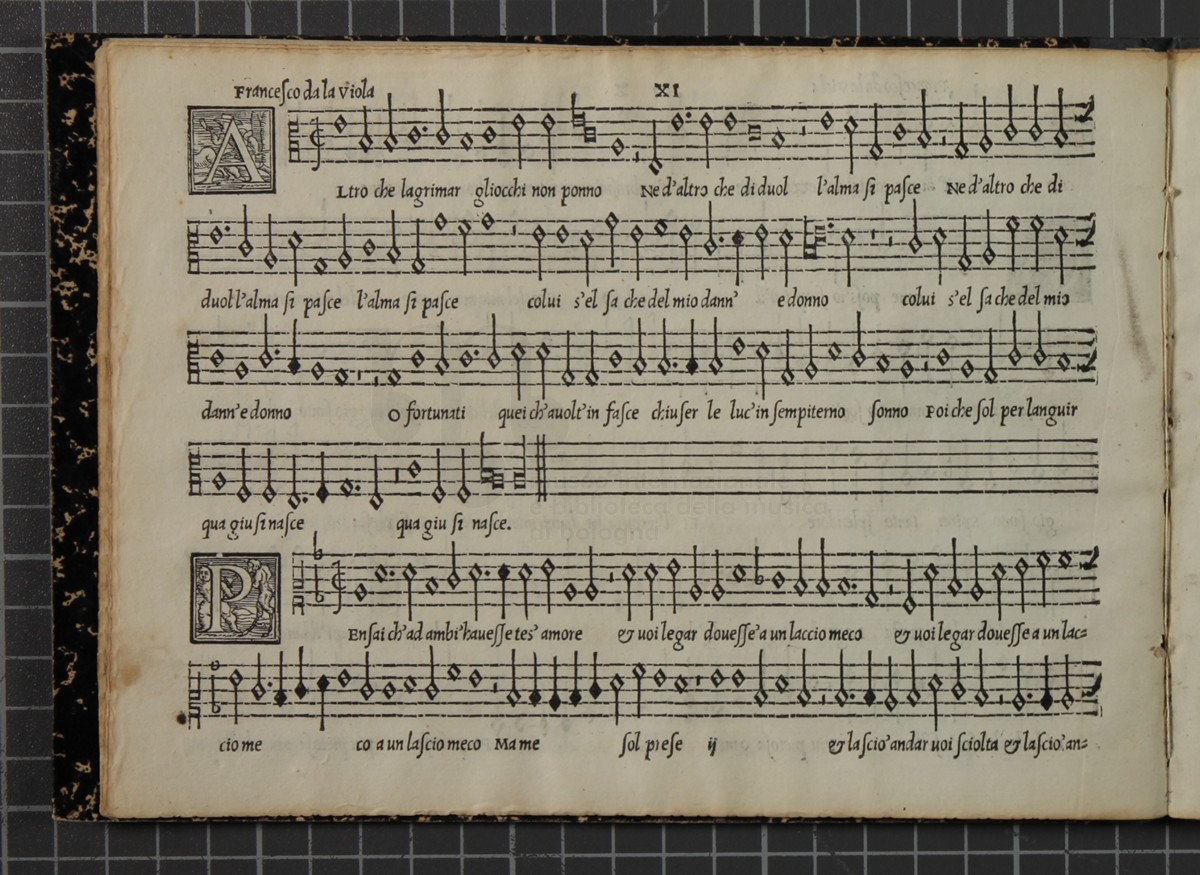 Francesco da la Viola
XI
A
Ltro che lagrimar gliocchi non ponno Ne d'altro che di duol l'alma si pasce Ne d'altro che di
duol l'alma si pasce l'alma si pasce colui s'el sa che del mio dann' e donno colui s'el sa che del mio
dann'e donno O fortunati quei ch'auolt'in fasce chiuser le luc'in sempiterno sonno Poi che sol per languir
qua giu si nasce qua giu si nasce.
e biblioteca della musica
di bologna
P
Ensai ch'ad ambi'hauesse tes' amore & uoi legar douesse'a un laccio meco & uoi legar douesse a un lac=
cio me co a un lascio meco Ma me sol prese ij & lascio'andar uoi sciolta & lascio'an=